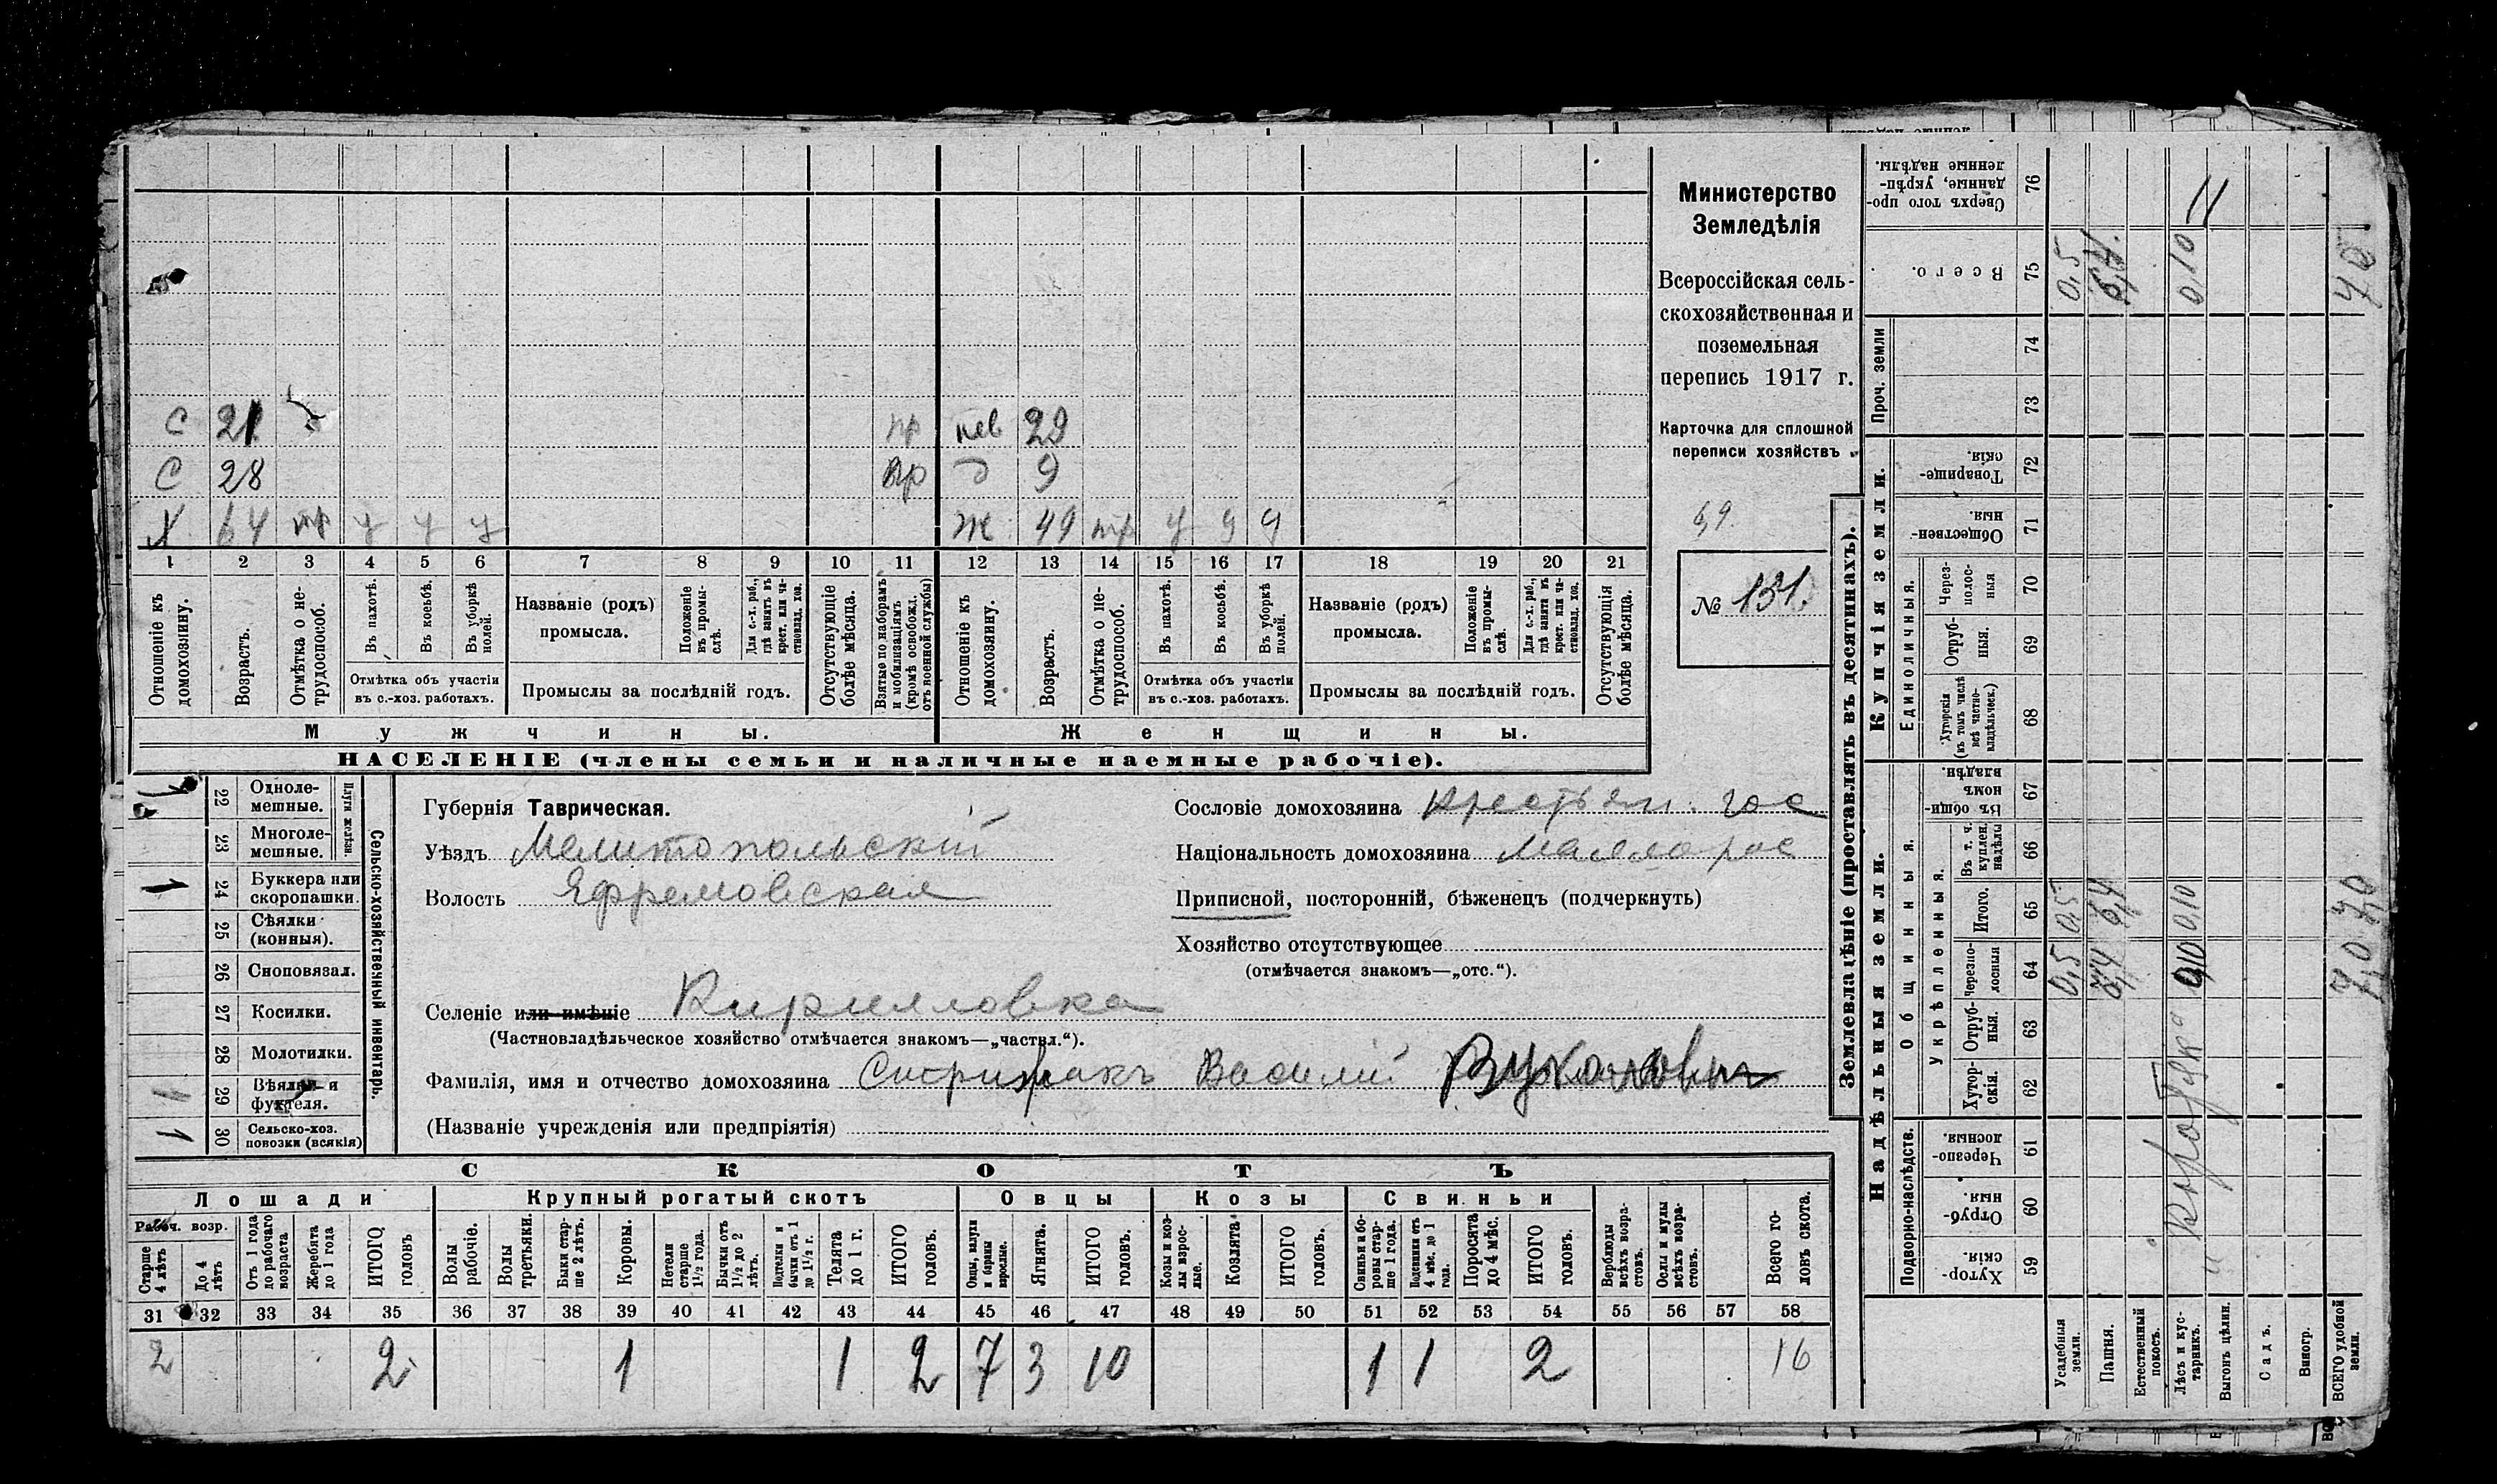 С 21 пр нев 29
С 28 пр д 9
Х 64 тр у у у Ж 49 тр у
1 2 3 4 5 6 7 8 9 10 11 12 13 14 15 16 17 18 19 20 21
Отношеніе къ домохозяину.
Возрастъ.
Отмѣтка о нетрудоспособ.
Въ пахотѣ.
Въ косьбѣ.
Въ уборкѣ полей.
Отмѣтка объ участіи
въ с.-хоз. работахъ.
Названіе (родъ)
промысла.
Положеніе въ промыслѣ.
Для с.-х. раб., гдѣ занятъ въ крест. или частновлад. хоз.
Промыслы за послѣдній годъ.
Отсутствующіе болѣе мѣсяца.
Взятые по наборамъ и мобилизаціямъ (кромѣ освобожд. отъ военной службы)
Отношеніе къ домохозяину.
Возрастъ.
Отмѣтка о нетрудоспособ.
Въ пахотѣ.
Въ косьбѣ.
Въ уборкѣ полей.
Отмѣтка объ участіи
въ с.-хоз. работахъ.
Названіе (родъ)
промысла.
Положеніе въ промыслѣ.
Для с.-х. раб., гдѣ занята въ крест. или частновлад. хоз.
Промыслы за послѣдній годъ.
Отсутствующія болѣе мѣсяца.
Мужчины. Женщины.
НАСЕЛЕНІЕ (члены семьи и наличные наемные рабочіе).
Министерство
Земледѣлія
Всероссійская сель-
скохозяйственная и
поземельная
перепись 1917 г.
Карточка для сплошной
переписи хозяйствъ.
№ 131.
Сельско-хозяйственный инвентарь.
Плуги желѣзн.
22 Одноле-
мешные.
23 Многоле-
мешные.
1 24 Буккера или
скоропашки.
25 Сѣялки
(конныя).
26 Сноповязал.
27 Косилки.
28 Молотилки.
1 29 Вѣялки и
фухтеля.
1 30 Сельско-хоз.
повозки (всякія)
Губернія Таврическая.
Уѣздъ Мелитопольскій
Волость Ефремовская
Селеніе или имѣніе Кирилловка
(Частновладѣльческое хозяйство отмѣчается знакомъ—„частвл.“).
Фамилія, имя и отчество домохозяина Василій
(Названіе учрежденія или предпріятія)
Сословіе домохозяина крестьян. гос
Національность домохозяина малорос
Приписной, посторонній, бѣженецъ (подчеркнуть)
Хозяйство отсутствующее
(отмѣчается знакомъ—„отс.“).
СКОТЪ
Лошади Крупный рогатый скотъ Овцы Козы Свиньи
Рабоч. возр.
Старше 4 лѣтъ
До 4 лѣтъ
Отъ 1 года до рабочаго возраста
Жеребята до 1 года
ИТОГО головъ
Волы рабочіе.
Волы третьяки.
Быки старше 2 лѣтъ.
Коровы.
Нетели старше 1½ года.
Бычки отъ 1½ до 2 лѣтъ.
Подтелки и бычки отъ 1 до 1½ г.
Телята до 1 г.
ИТОГО головъ.
Овцы, валухи и бараны взрослые.
Ягнята.
ИТОГО головъ.
Козы и козлы взрослые.
Козлята
ИТОГО головъ.
Свиньи и боровы старше 1 года.
Подсвинки отъ 4 мѣс. до 1 года.
Поросята до 4 мѣс.
ИТОГО головъ.
Верблюды всѣхъ возрастовъ.
Ослы и мулы всѣхъ возрастовъ.
Всего головъ скота.
31 32 33 34 35 36 37 38 39 40 41 42 43 44 45 46 47 48 49 50 51 52 53 54 55 56 57 58
2 2 1 1 2 7 3 10 1 1 2 16
Землевладѣніе (проставлять въ десятинахъ).
Купчія земли.
Надѣльныя земли.
Сверхъ того проданные, укрѣпленные надѣлы. 76
Всего. 75 0,5 0,10
Проч. земли 74 73
Товарищескія. 72
Общественныя. 71
Единоличныя.
Черезполосныя 70
Отрубныя. 69
Хуторскія (въ томъ числѣ всѣ частновладѣльческ.) 68
Общинныя.
Въ общинномъ владѣн. 67
Укрѣпленныя.
Въ т. ч. куплен. надѣлы 66
Итого. 65 0,5 6,4 0,10
Черезполосныя 64 0,5 0,10
Отрубныя. 63
Хуторскія. 62
Подворно-наслѣдств.
Черезполосныя. 61
Отрубныя. 60
Хуторскія. 59
Усадебныя земли.
Пашня.
Естественный покосъ.
Лѣсъ и кустарникъ.
Выгонъ цѣлин.
Садъ.
Виногр.
ВСЕГО удобной земли.